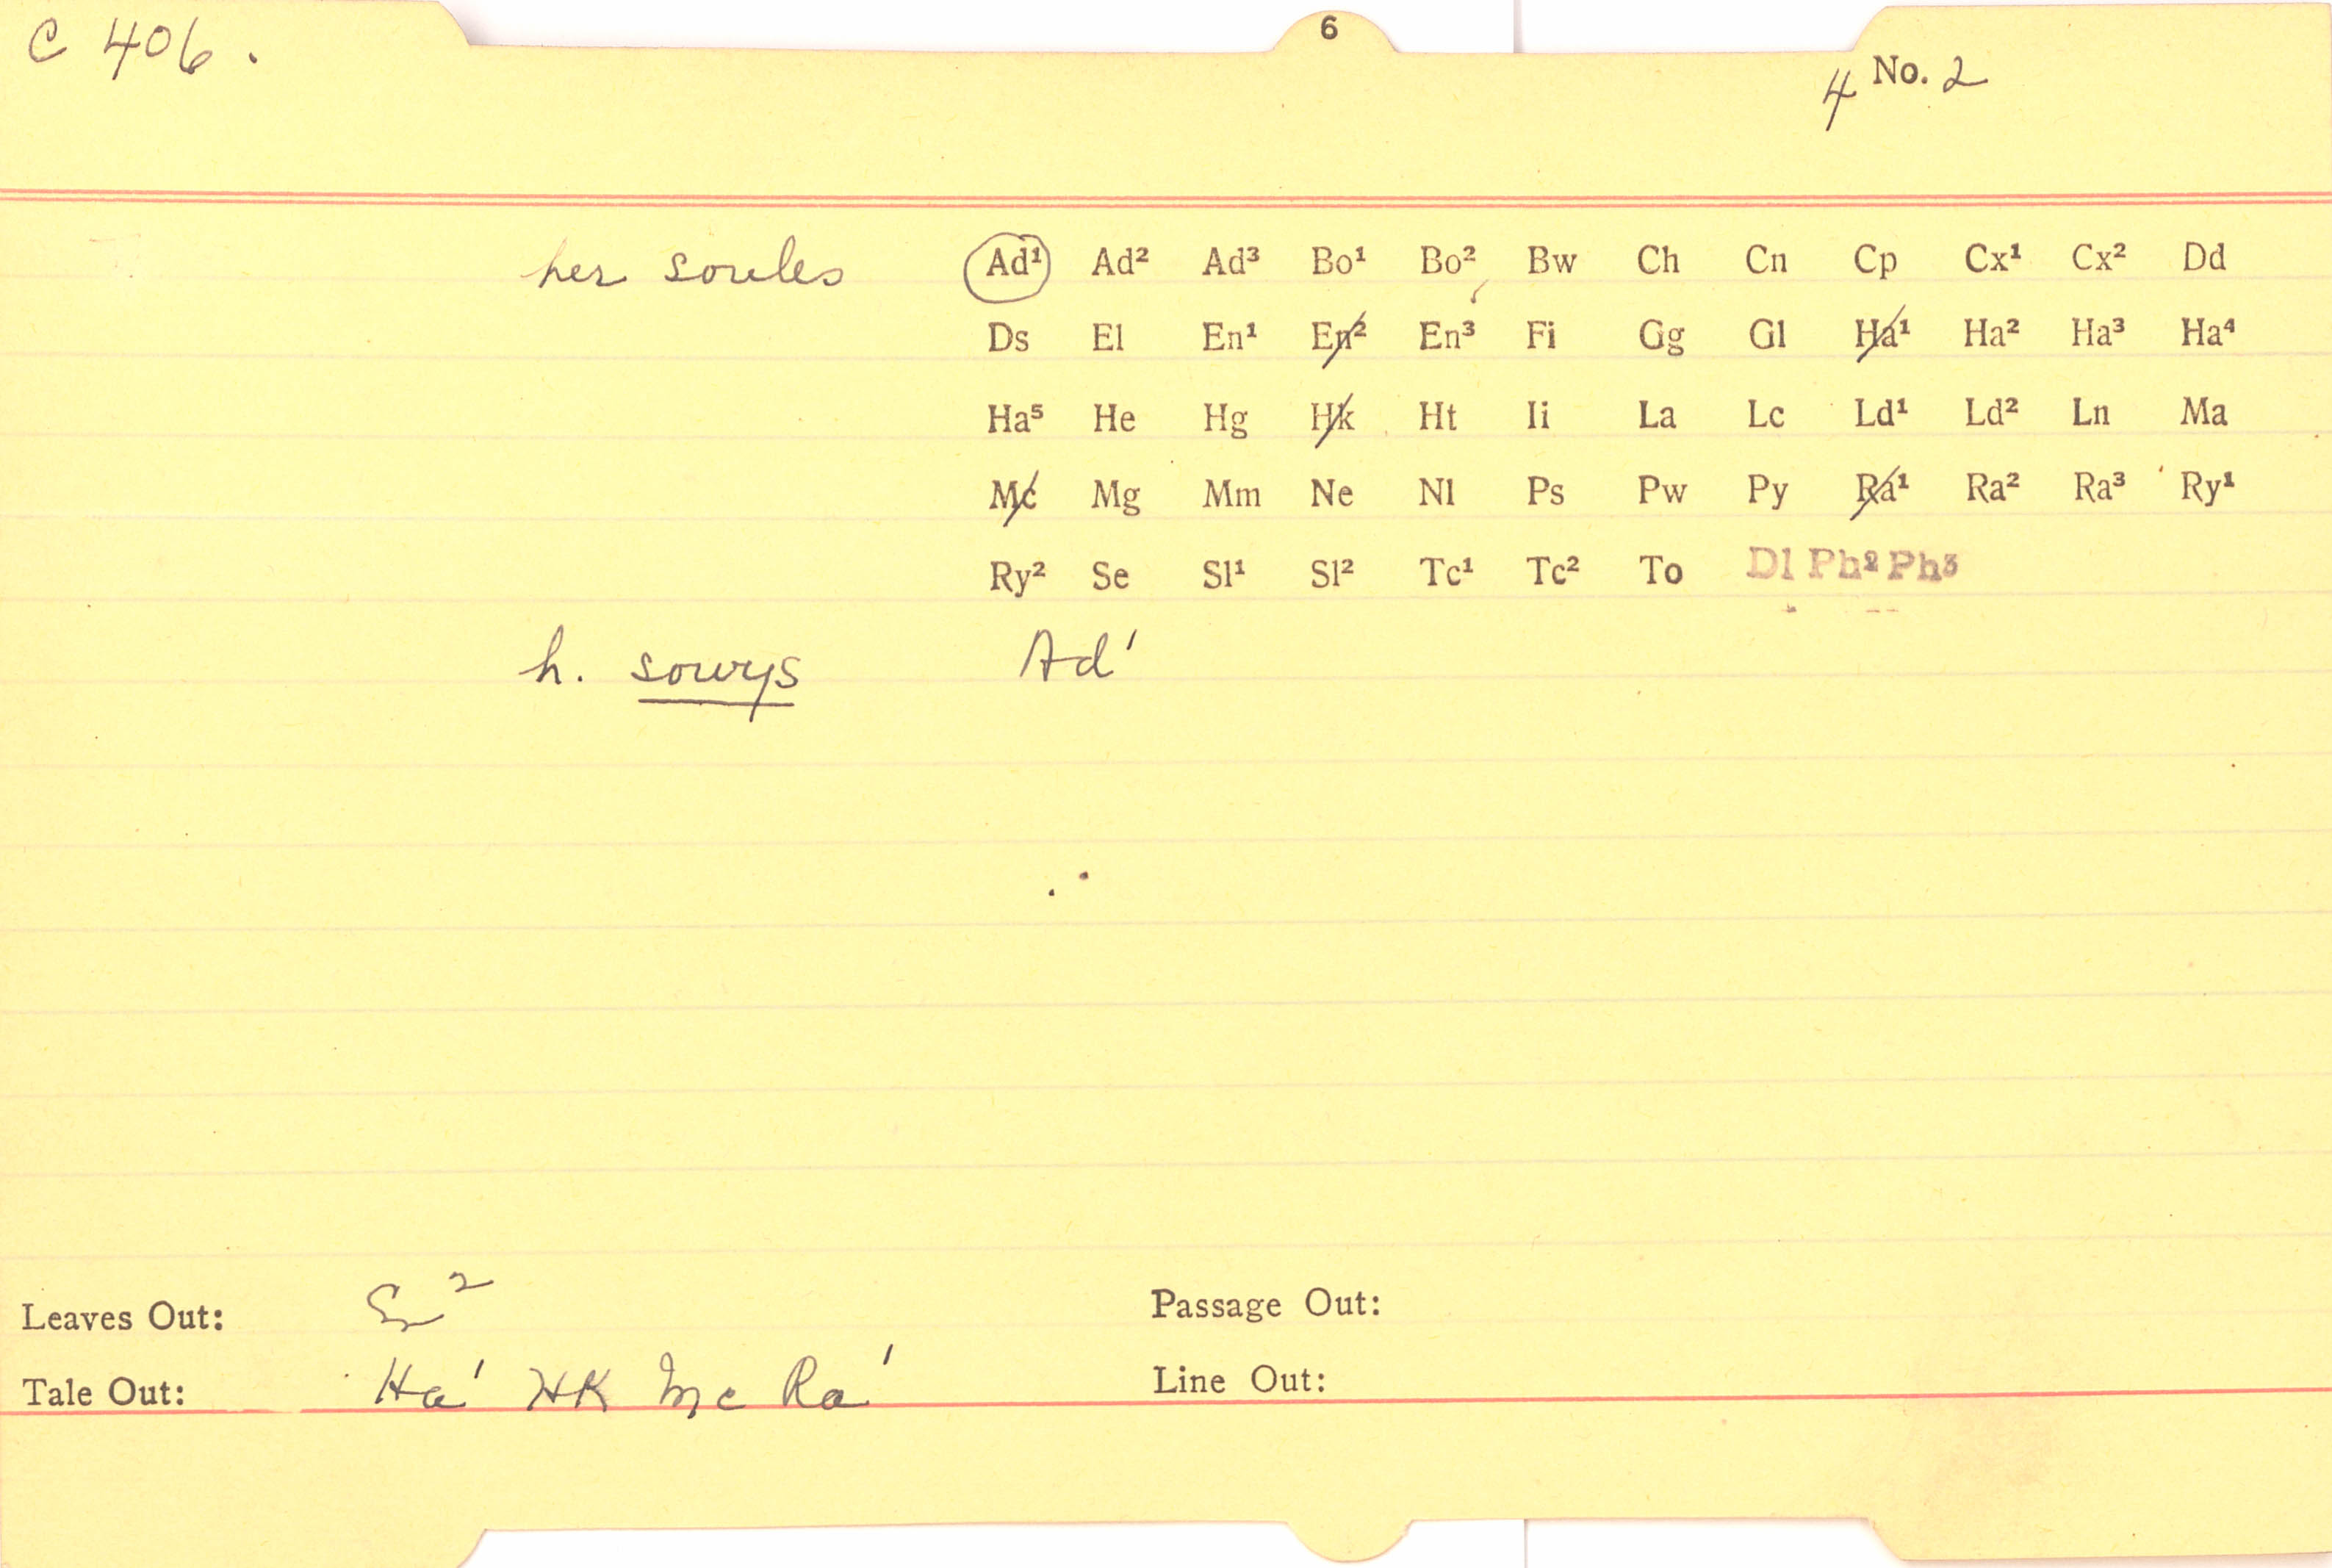 C 406.
6
4 No. 2
her soules Ad¹ Ad² Ad³ Bo¹ Bo² Bw Ch Cn Cp Cx¹ Cx² Dd
Ds El En¹ En² En³ Fi Gg Gl Ha¹ Ha² Ha³ Ha⁴
Ha⁵ He Hg Hk Ht Ii La Lc Ld¹ Ld² Ln Ma
Mc Mg Mm Ne Nl Ps Pw Py Ra¹ Ra² Ra³ Ry¹
Ry² Se Sl¹ Sl² Tc¹ Tc² To Dl Ph² Ph³
h. sowys Ad¹
Leaves Out: En² Passage Out:
Tale Out: Ha¹ HK Mc Ra¹ Line Out: